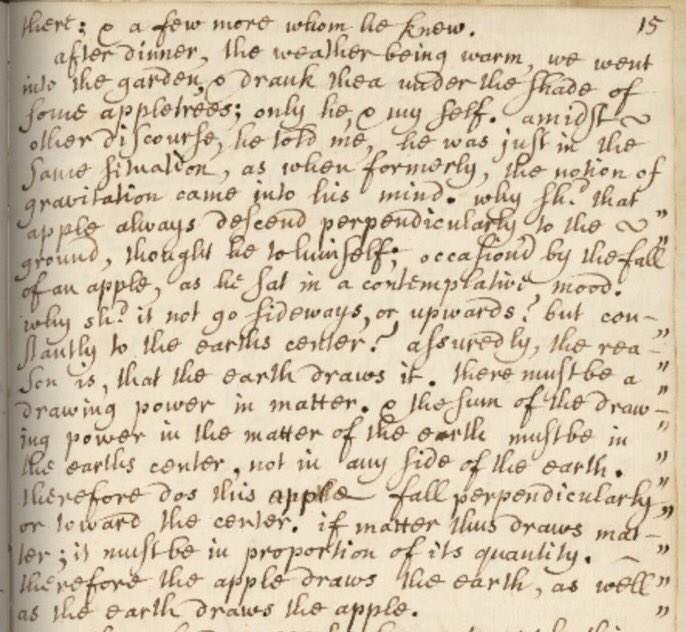 there: & a few more whom he knew. 15
after dinner, the weather being warm, we went
into the garden, & drank thea under the shade of
some appletrees; only he, & my self. amidst ~
other discourse, he told me, he was just in the
same situation, as when formerly, the notion of
gravitation came into his mind. why sh.d that
apple always descend perpendicularly to the ~ "
ground, thought he to himself; occasion'd by the fall
of an apple, as he sat in a contemplative mood.
why sh.d it not go sideways, or upwards? but con- "
stantly to the earths center? assuredly, the rea- "
son is, that the earth draws it. there must be a "
drawing power in matter. & the sum of the draw- "
ing power in the matter of the earth must be in "
the earths center, not in any side of the earth. "
therefore dos this apple fall perpendicularly "
or toward the center. if matter thus draws mat- "
ter; it must be in proportion of its quantity. - "
therefore the apple draws the earth, as well "
as the earth draws the apple. "